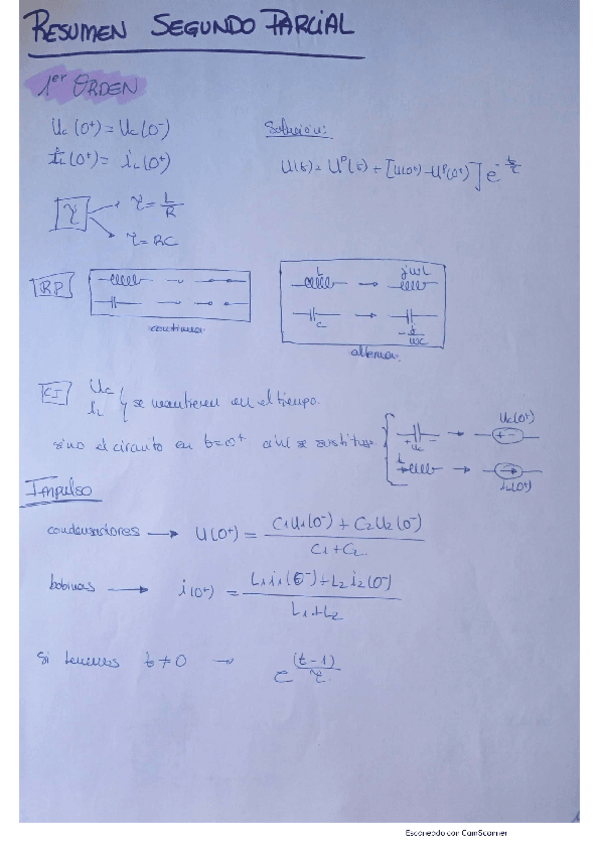 RESUMEN SEGUNDO PARCIAL
1er ORDEN
Uc(0+) = Uc(0-)
iL(0+) = iL(0+)
Solución:
U(t) = Up(t) + [U(0+) - Up(0+)] e^-t/τ
τ
τ = L/R
τ = RC
RP
continua
L → jωL
C → -j/ωC
alterna
CI
Uc
iL } se mantienen en el tiempo.
sino el circuito en t=0+ se sustituye
+ Uc - → Uc(0+) + -
L → iL(0+)
Impulso
condensadores → U(0+) = C1U1(0-) + C2U2(0-) / C1+C2
bobinas → i(0+) = L1i1(0-) + L2i2(0-) / L1+L2
Si tenemos t ≠ 0 → e (t-1)/τ
Escaneado con CamScanner